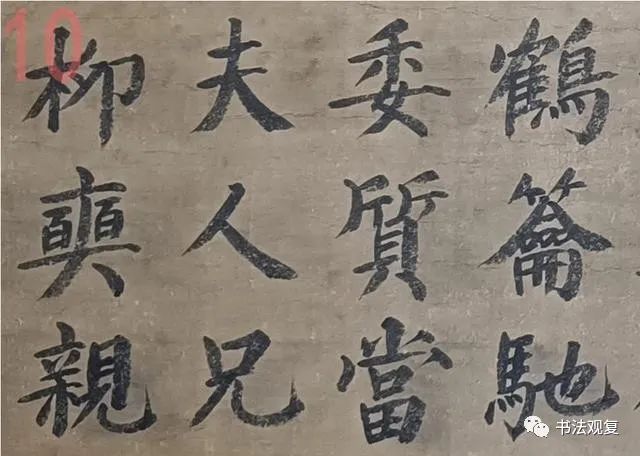 鶴籥馳
委質當
夫人兄
柳奭親
10
书法观复